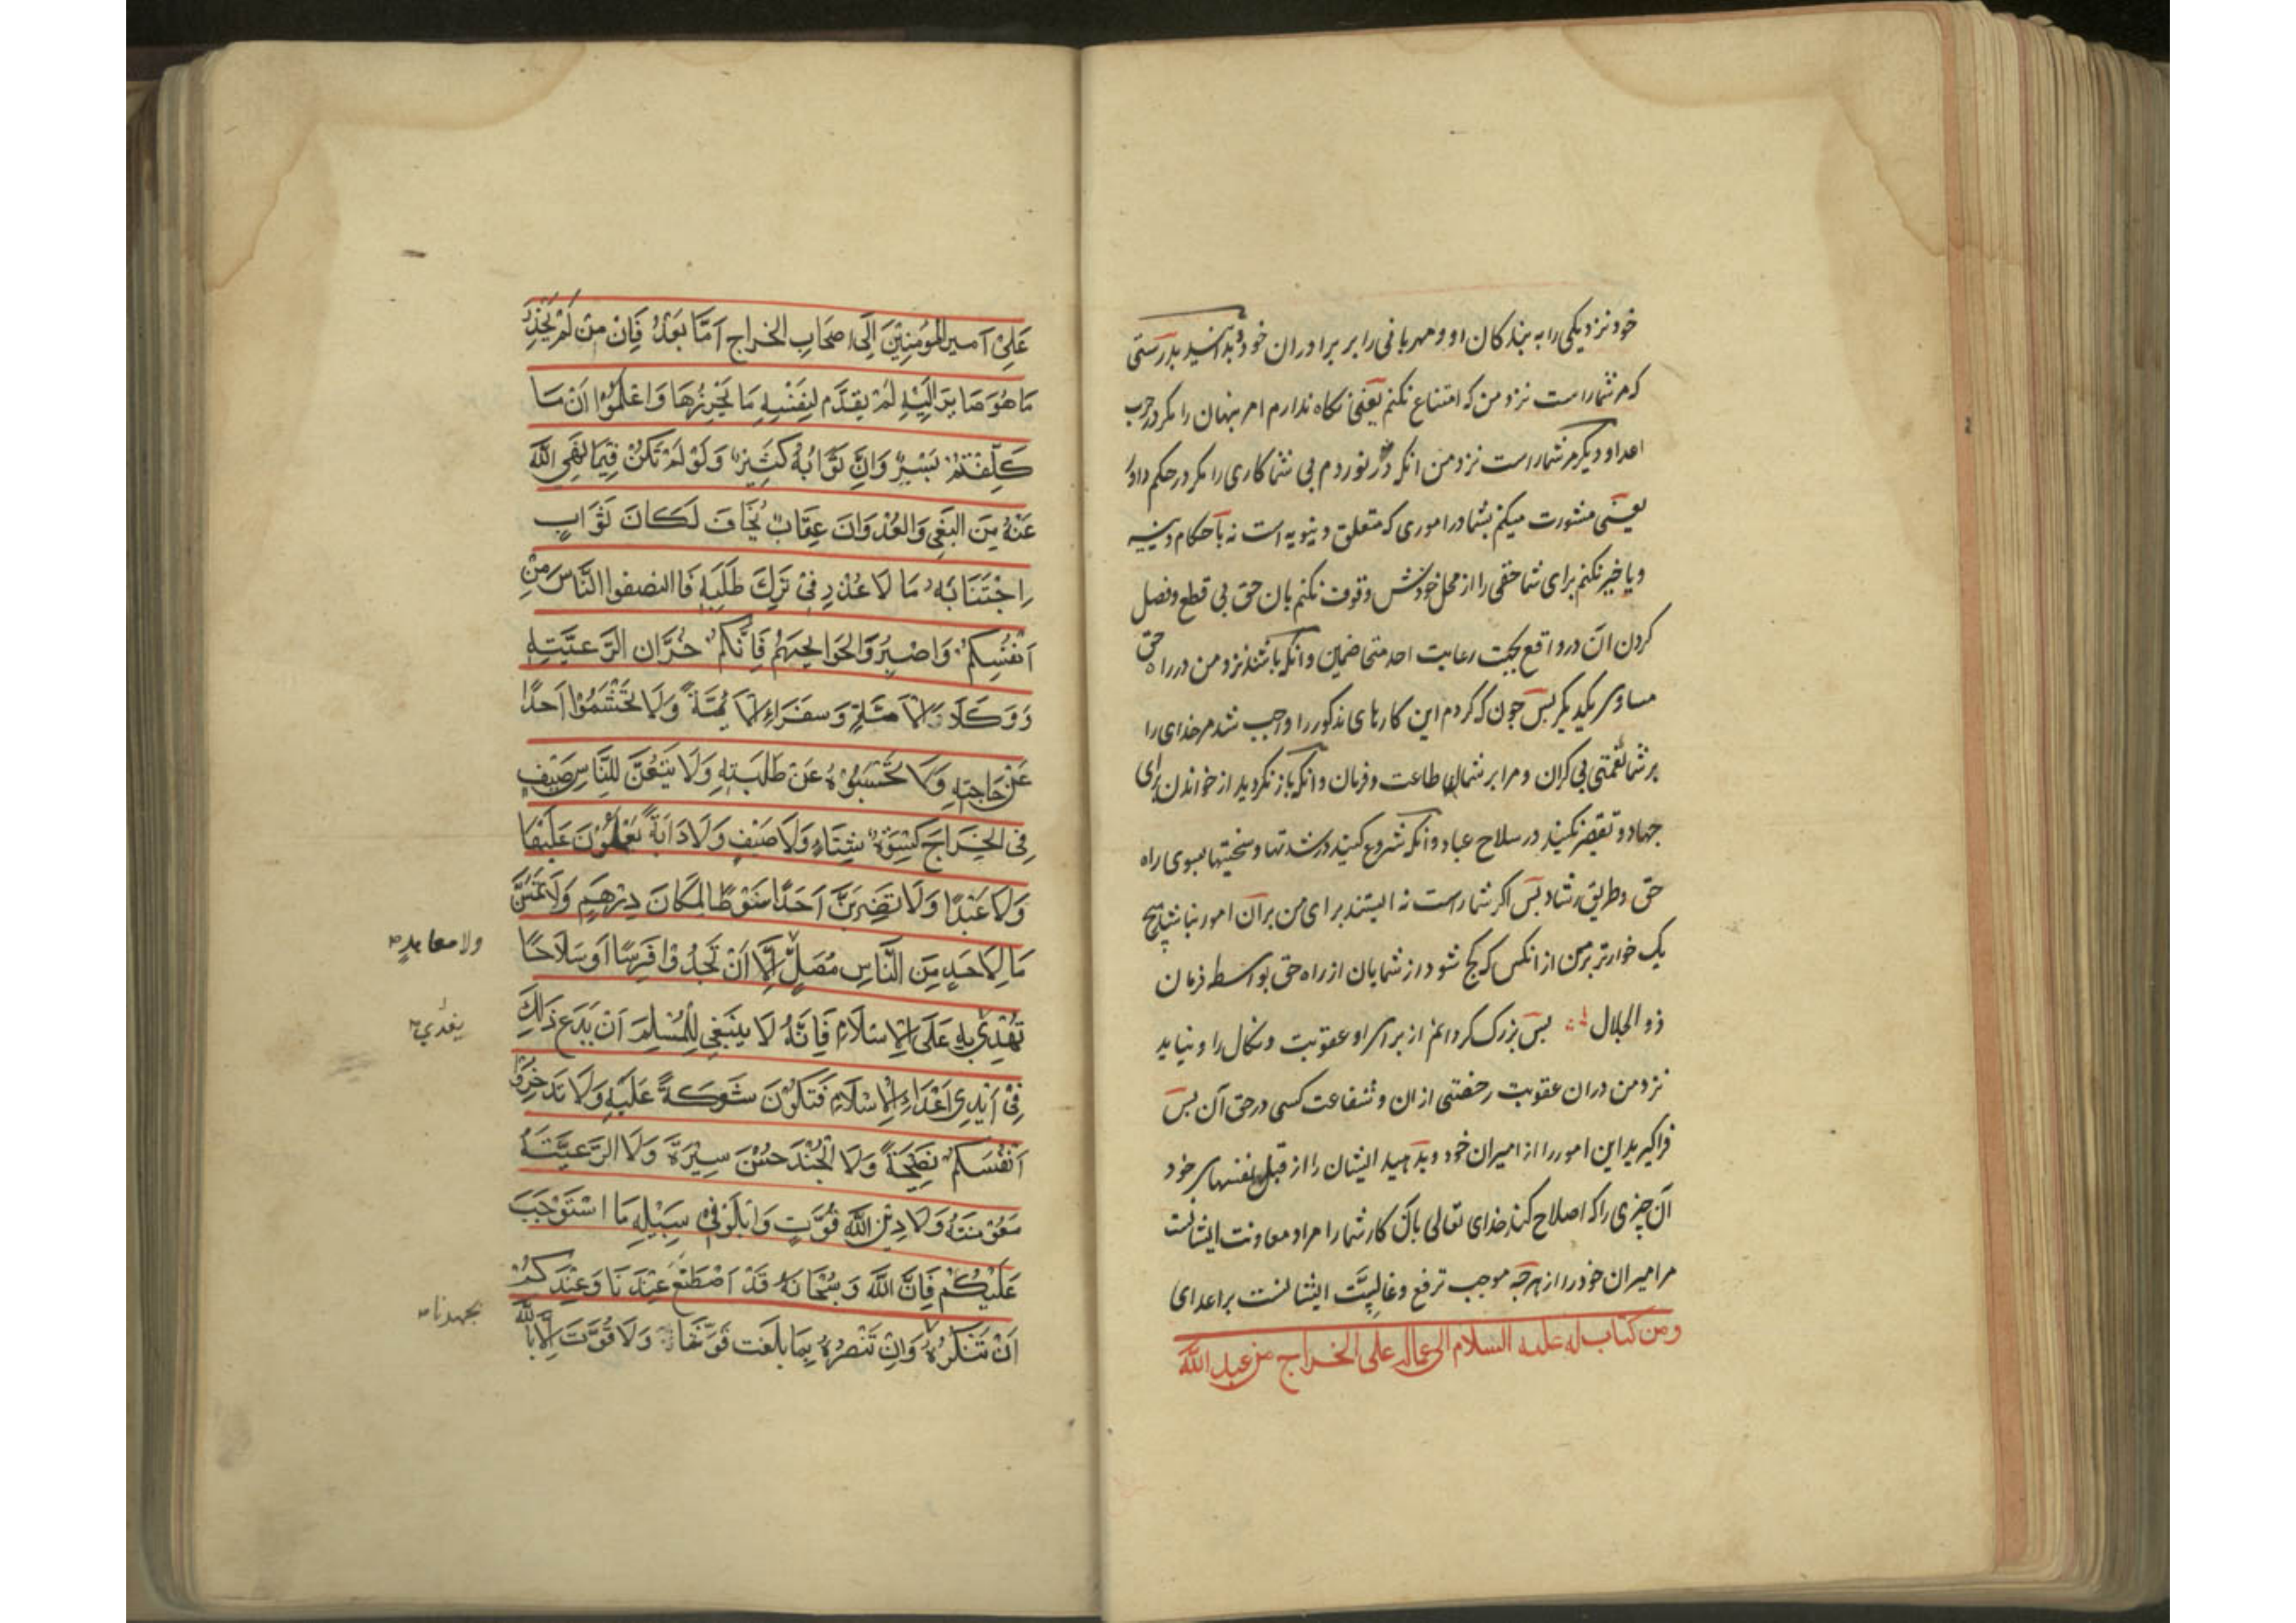 خود نزدیکی را به بندکان او و مهربانی را بر برادران خود و بدانید بدرستی
که مر شما راست نزد من که امتناع نکنم یعنی نکاه ندارم امر پنهان را مکر در حرب
اعدا و دیکر مر شما راست نزد من آنکه در نوردم بی شما کاری را مکر در حکم داو
یعنی مشورت میکنم بشما در اموری که متعلق دنیویه است نه باحکام دینیه
و یا خیر نکنم برای شما حقی را از محل خودش و قوف نکنم بان حق بی قطع و فصل
کردن آن در واقع بجهت رعایت احد متخاضمین و آنکه باشند نزد من در راه حق
مساوی یکدیکر پس چون که کردم این کارهای مذکور را واجب شد مر خدای را
بر شما نعمتی بی کران و مرا بر شما طاعت و فرمان و آنکه باز نکردید از خواندن برای
جهاد و تقصیر نکنید در سلاح عباد و آنکه شروع کنید در شدتها و سختیها بسوی راه
حق و طریق رشاد پس اکر شما راست نه ایستند برای من بر آن امور نباشد هیچ
یک خوارتر بر من از آنکس که کج شود از شمایان از راه حق بواسطه فرمان
ذو الجلال پس بزرک کردانم از برای او عقوبت و نکال را و نیابد
نزد من در آن عقوبت رخصتی از آن و شفاعت کسی در حق آن پس
فراکیرید این امور را از امیران خود و بدهید ایشان را از قبل نفسهای خود
آن چیزی را که اصلاح کند خدای تعالی بآن کار شما را مراد معاونت ایشانست
مر امیران خود را از هرچه موجب ترفع و غالبیت ایشانست بر اعدای
ومن کتاب له علیه السلام الی عماله علی الخراج من عبد الله
عَلِیٍّ اَمیرِ المُؤمِنِینَ اِلَی اَصحَابِ الخَراجِ اَمَّا بَعدُ فَاِنَّ مَن لَم یَحذَر
مَا هُوَ صَایِرٌ اِلَیهِ لَم یُقَدِّم لِنَفسِهِ مَا یُحرِزُهَا وَاعلَمُوا اَنَّ مَا
کُلِّفتُم یَسیرٌ وَاَنَّ ثَوَابَهُ کَثِیرٌ وَلَو لَم تَکُن فِیمَا نَهَی اللهُ
عَنهُ مِنَ البَغیِ وَالعُدوَانِ عِقَابٌ یُخَافُ لَکَانَ ثَوَابِ
اِجتِنَابِه مَا لَا عُذرَ فِی تَرکِ طَلَبِهِ فَاانصفوا النَّاسَ مِن
اَنفُسِکُم وَاصبِرُوا لِحَوَایِجِهِم فَاِنَّکُم خُزَّان الرَّعِیَّتِهِ
وَوُکَلَاءُ الاُمَّةِ وَسُفَرَاءُ الاَیِمَّةِ وَلَا تَحشَمُوا اَحَدًا
عَن حَاجَتِهِ وَلَا تَحبَسُوهُ عَن طَلِبَتِهِ وَلَا تَبِیعُنَّ لِلنَّاسِ صَیفٍ
فِی الخَرَاجِ کِسوَةَ شِتَاءٍ وَلَا صَیفٍ وَلَا دَابَةً یَعتَمِلُونَ عَلَیهَا
وَلَا عَبدًا وَلَا تَضرِبَنَّ اَحَدًا سَوطًا لِمَکَانَ دِرهَمٍ وَلَا تَمَسُّنَّ
مَالَ اَحَدٍ مِنَ النَّاسِ مُصَلٍّ اِلَّا اَن تَجِدُوا فَرَسًا اَو سَلَاحًا
ولا معاهدٍ
تُهدَی بِهِ عَلَی الاِسلَامِ فَاِنَّهُ لَا یَنبَغِی لِلمُسلِمِ اَن یَدَعَ ذَلِکَ
یغدی
فِی اَیدِی اَعدَاءِ الاِسلَامِ فَتَکُونَ شَوکَةً عَلَیهِ وَلَا تَدَخِرُوا
اَنفُسَکُم نَصِیحَةً وَلَا الجُندَ حُسنَ سِیرَةٍ وَلَا الرَّعِیَّتَهُ
مَعُونَتَهُ وَلَا دِینَ اللهِ قُوَّتٍ وَابلَو فِی سَبِیلِهِ مَا استَوجَبَ
عَلَیکُم فَاِنَّ اللهَ وَسُبحَانَهُ قَد اصطَنَعَ عِندَنَا وَعِندَکُم
اَن نَشکُرَهُ وَاَن نَنصُرَهُ بِمَا بَلَغَت قُوَّتنَا وَلَا قُوَّتَ اِلَّا بِاللهِ
بجهدنا